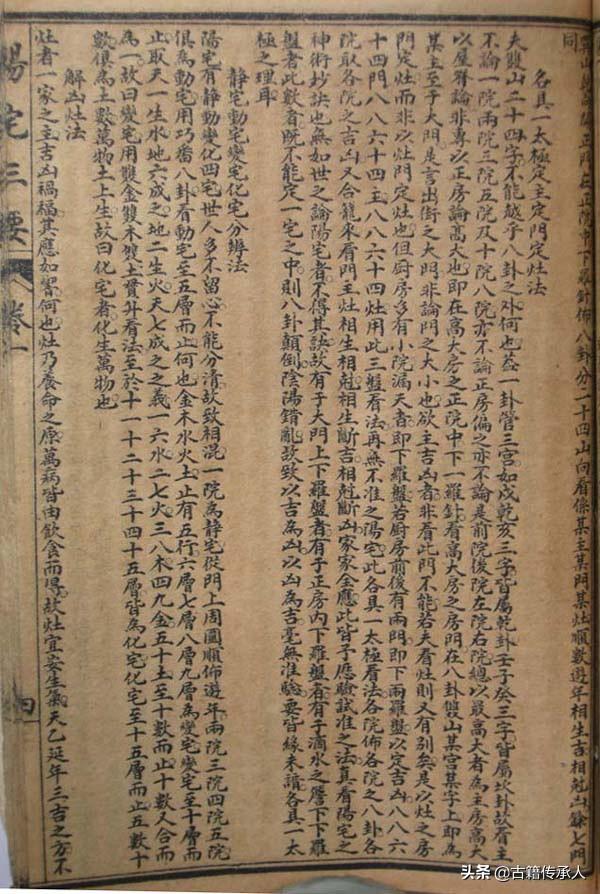 同
各具一太極定主定門定灶法
夫雙山二十四字不能越乎八卦之外何也蓋一卦管三宮如戌乾亥三字皆屬乾卦壬子癸三字皆屬坎卦故看主
不論一院兩院三院五院及十院八院亦不論正房偏之亦不論是前院後院左院右院總以最高大者為主房高大
以屋脊論非專以正房論高大也即在高大房之正院中下一羅針看高大房之房門在八卦雙山某宮某字上即為
某主至于大門是言出街之大門非論門之大小也欲主吉凶者非看此門不能若夫看灶則又有別矣是以灶之房
門定灶而非以灶門定灶也但厨房多有小院漏天者即下羅盤若厨房前後有兩門即下兩羅盤以定吉凶八八六
十四門八八六十四主八八六十四灶用此三盤看法再無不准之陽宅此各具一太極看法各院佈各院之八卦各
院取各院之吉凶又合籠來看門主灶相生相尅相生斷吉相尅斷凶家家全應此皆予應驗試准之法真看陽宅之
神術抄訣也無如世之論陽宅者不得其訣故有于大門上下羅盤者有于正房內下羅盤者有子滴水之簷下下羅
盤者此數者既不能定一宅之中則八卦顛倒陰陽錯亂故致以吉為凶以凶為吉毫無準驗要皆緣未諳各具一太
極之理耳
靜宅動宅變宅化宅分辨法
陽宅有静動變化四宅世人多不留心不能分清故致相混一院為静宅從門上周圍順佈遊年兩院三院四院五院
俱為動宅用巧番八卦看動宅至五層而止何也金木水火土止有五行六層七層八層九層為變宅變宅至十層而
止取天一生水地六成之地二生火天七成之之義一六水二七火三八木四九金五十土至十數而止十數又合而
為一故曰變宅用雙金雙木雙土貫井看法至於十一十二十三十四十五層皆為化宅化宅至十五層而止五數十
數俱為土數萬物土上生故曰化宅者化生萬物也
解凶灶法
灶者一家之主吉凶禍福其應如響何也灶乃養命之原萬病皆由飲食而得故灶宜安生氣天乙延年三吉之方不
陽宅三要
卷一
四
头条 @古籍传承人